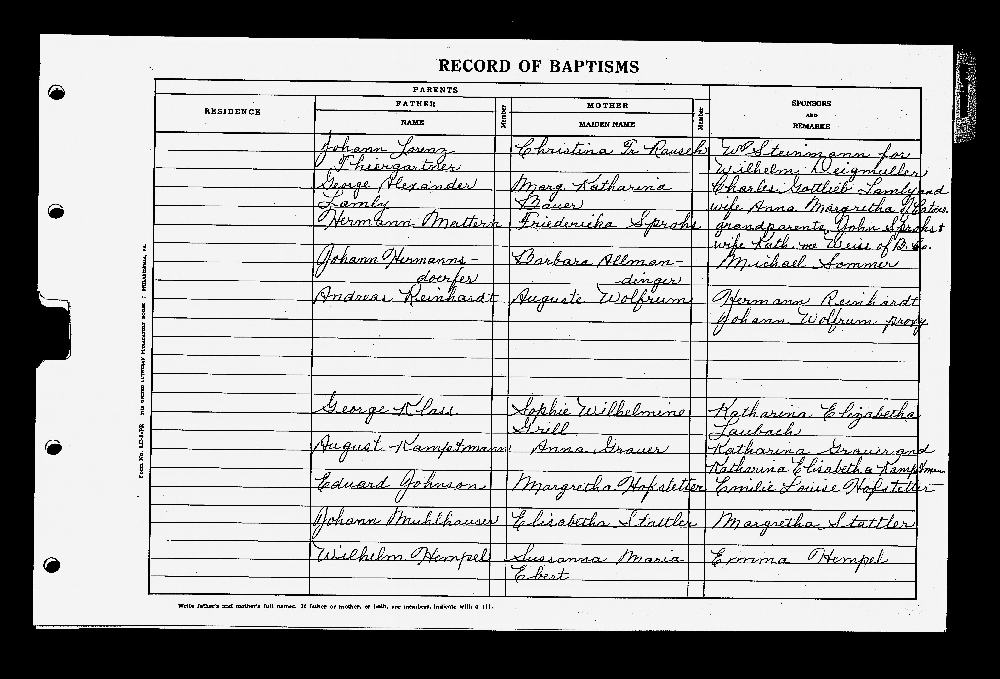 RECORD OF BAPTISMS
PARENTS
RESIDENCE
FATHER
NAME
Member
MOTHER
MAIDEN NAME
Member
SPONSORS
AND
REMARKS
Johann Lorenz Christina Tr Rausch Wm Steinmann for
Thiergartner Wilhelm
George Alexander Marg. Katharina Charles Gottlieb Lamly and
Lamly Bauer wife Anna Margretha
Hermann Mattern Friedericka Sprohs grandparents, John Sprohs &
wife Kath. nee Weiss of B. Co.
Johann Hermanns- Barbara Allman- Michael Sommer
doerfer dinger
Andreas Reinhardt Auguste Wolfrum Hermann Reinhardt
Johann Wolfrum proxy
George Klass Sophie Wilhelmine Katharina Elizabetha
Grill Laubach
August Kamptmann Anna Grauer Katharina Grauer and
Katharina Elisabetha Kamptmann
Eduard Johnson Margretha Hofstetter Emilie Louise Hofstetter
Johann Muhlhauser Elisabetha Stattler Margretha Stattler
Wilhelm Hempel Sussanna Maria Emma Hempel
Ebert
Write father's and mother's full names. If father or mother, or both, are members, indicate with a (1).